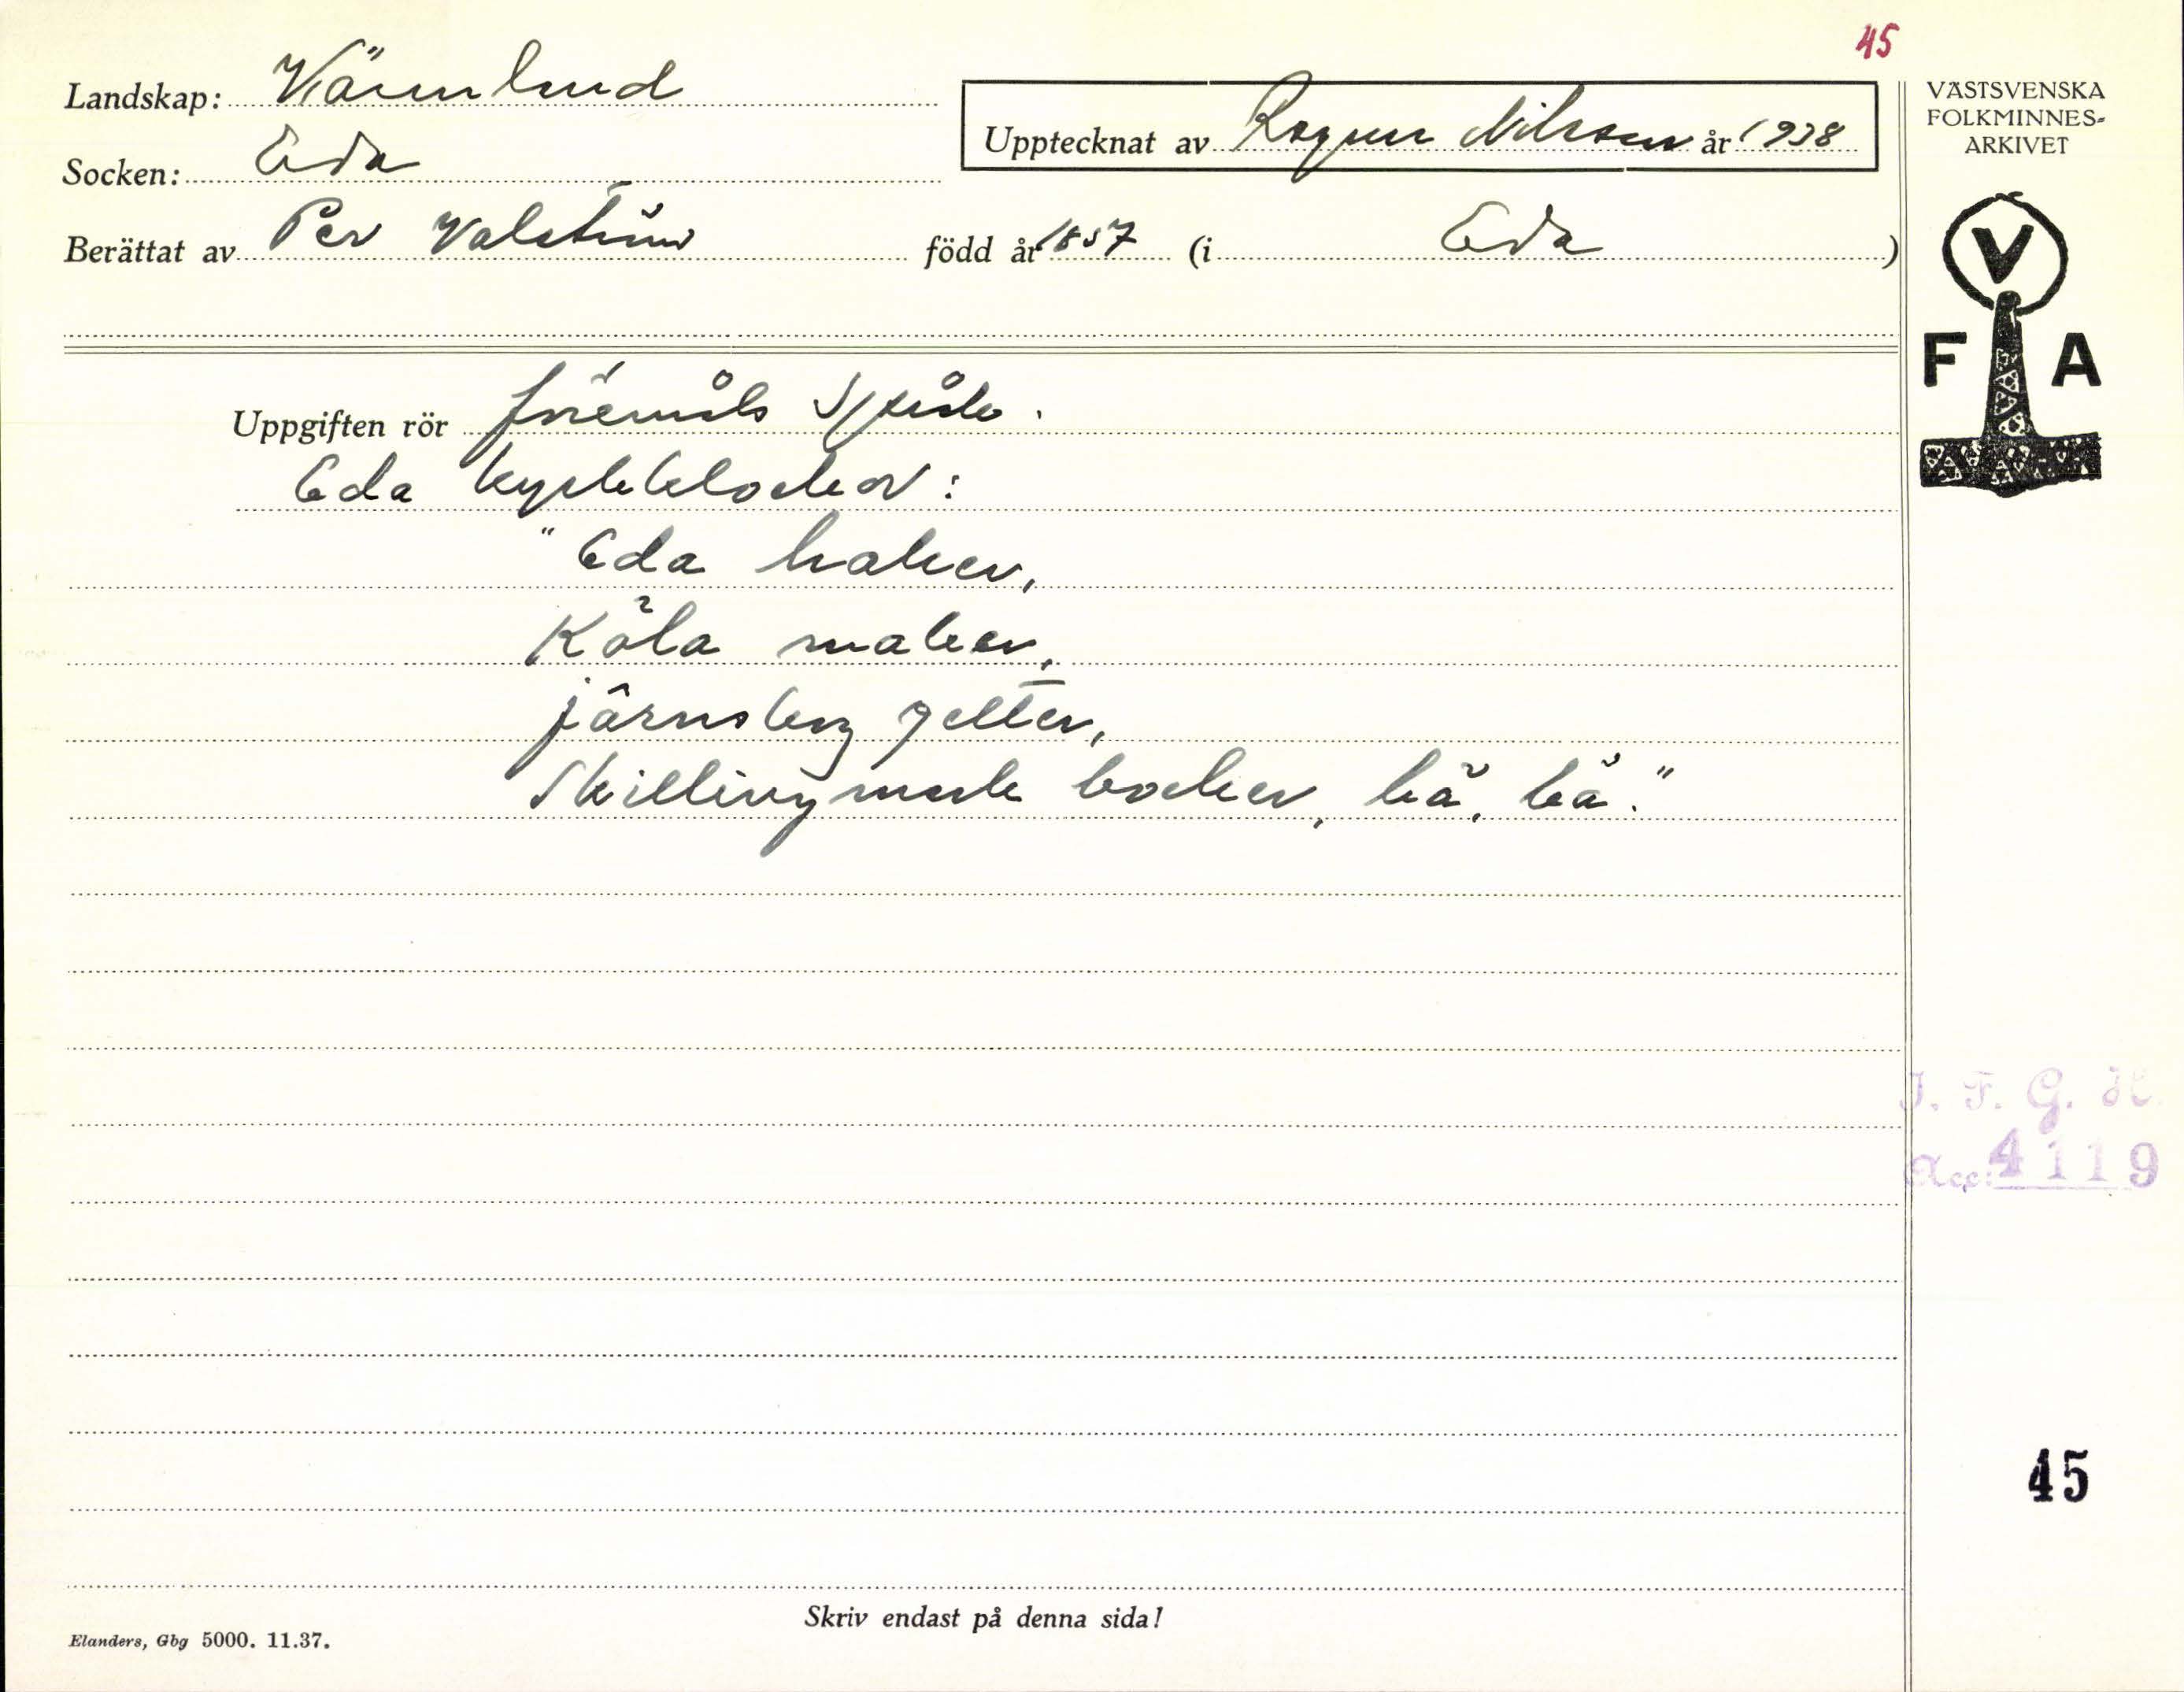 45
Landskap: Värmland
Upptecknat av Ragnar Nilsson år 1938
Socken: Eda
Berättat av Per Valström född år 1857 (i Eda)
VÄSTSVENSKA
FOLKMINNES=
ARKIVET
V
F A
Uppgiften rör föremåls språk.
Eda kyrkklockor:
"Eda haker,
Köla maker,
järnskog getter,
Skillingmark bocker, bä, bä."
I. F. G. H.
Acc: 4119
45
Skriv endast på denna sida!
Elanders, Gbg 5000. 11.37.